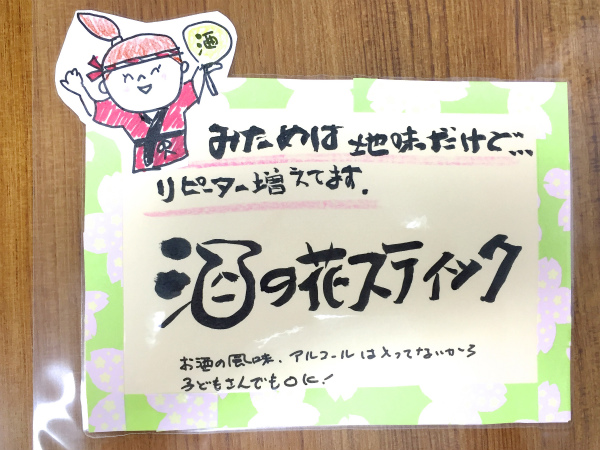 酒
みためは地味だけど...
リピーター増えてます.
酒の花スティック
お酒の風味、アルコールはとってないから
子どもさんでもOK!